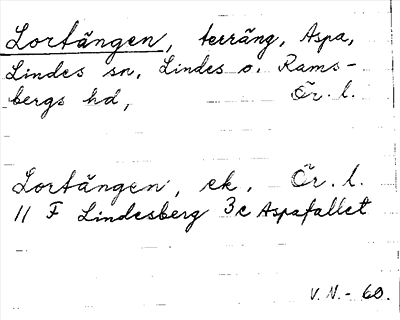 Lortängen, terräng, Aspa,
Lindes sn, Lindes o. Rams-
bergs hd, Ör. l.
Lortängen, ek. Ör. l.
11 F Lindesberg 3c Aspafallet
V. N. - 60.